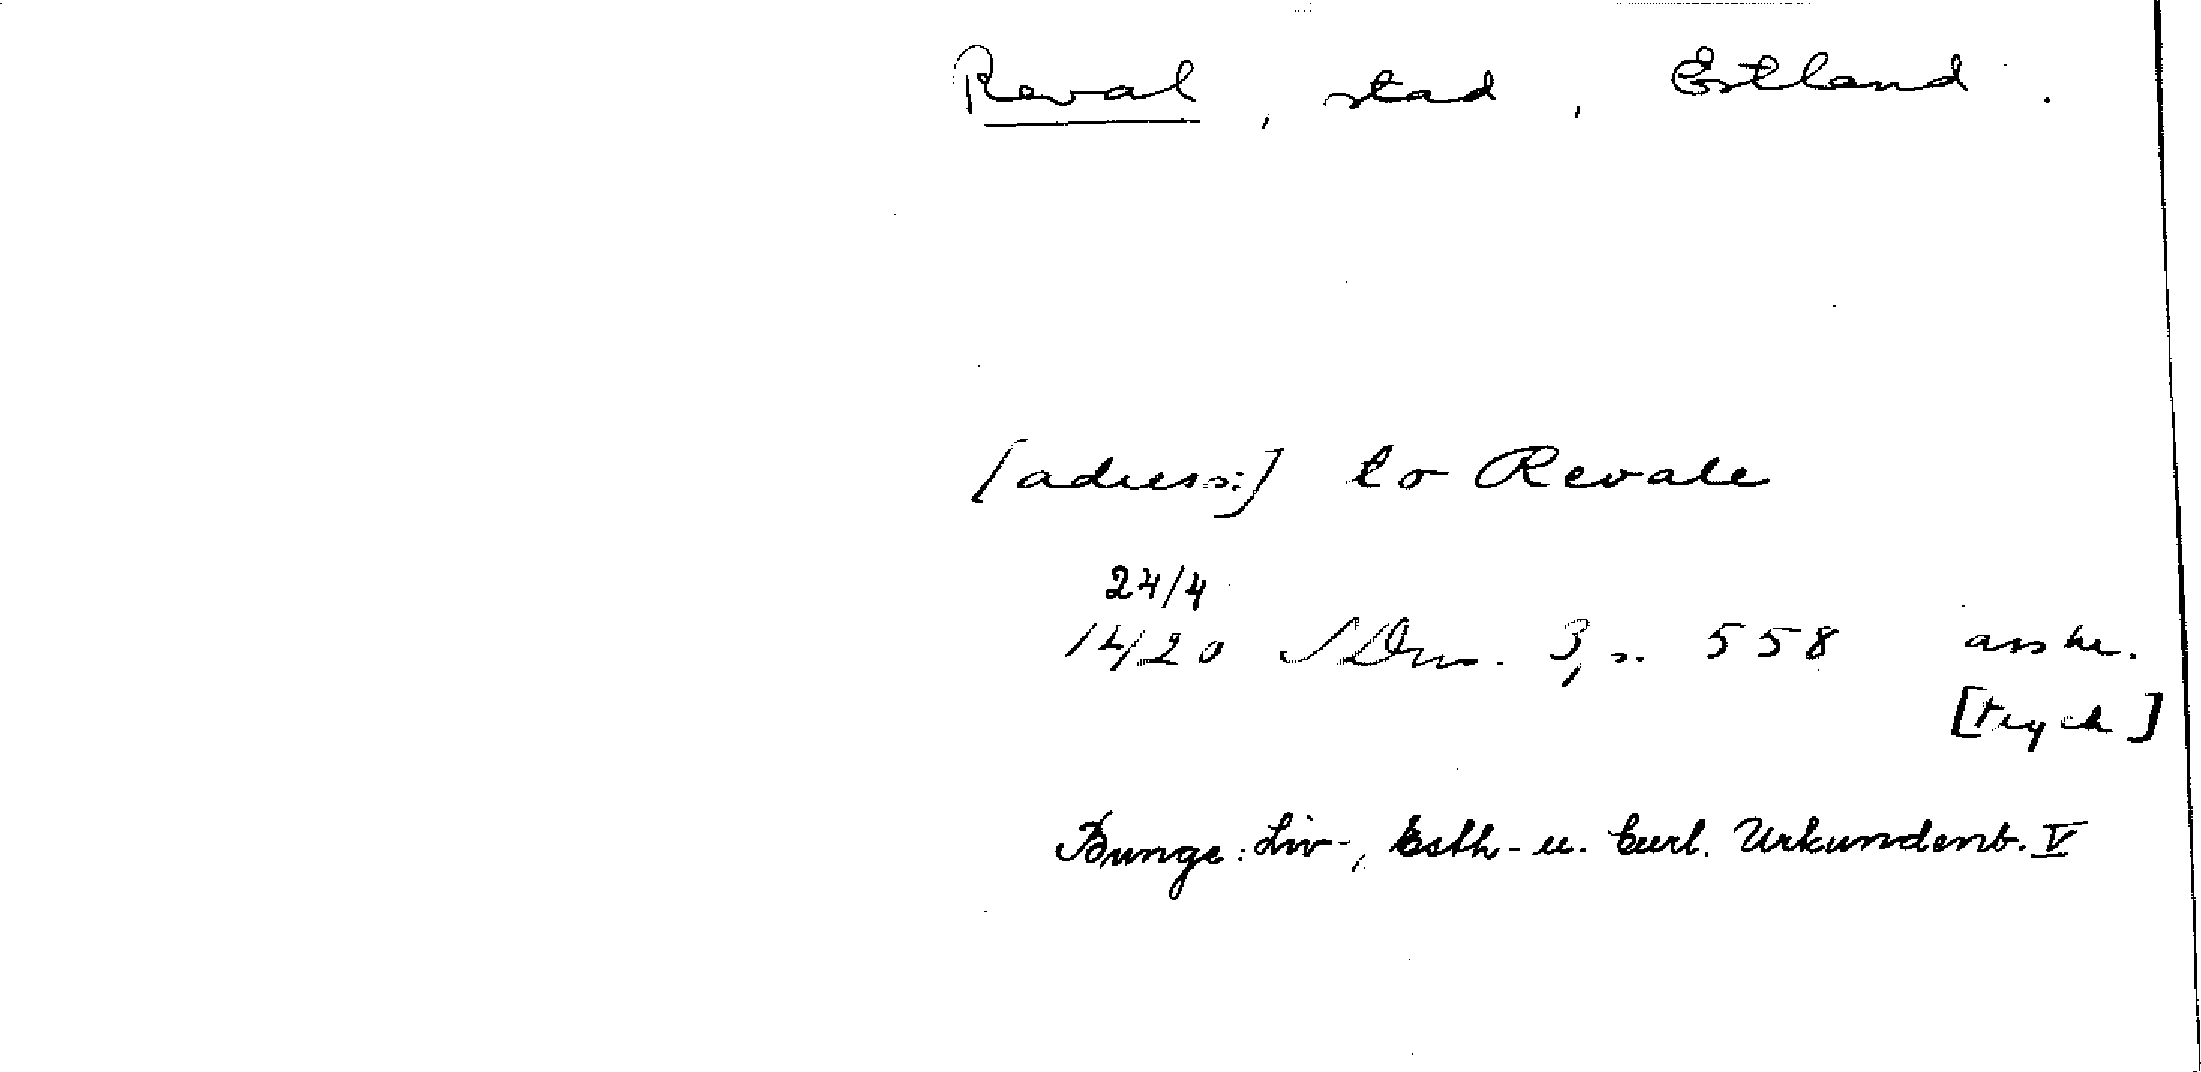 Reval, stad, Estland.
[adress:] to Revale
24/4
1420 SDns. 3, s. 558 avskr.
[tryck]
Bunge: Liv-, Esth- u. Curl. Urkundenb. V